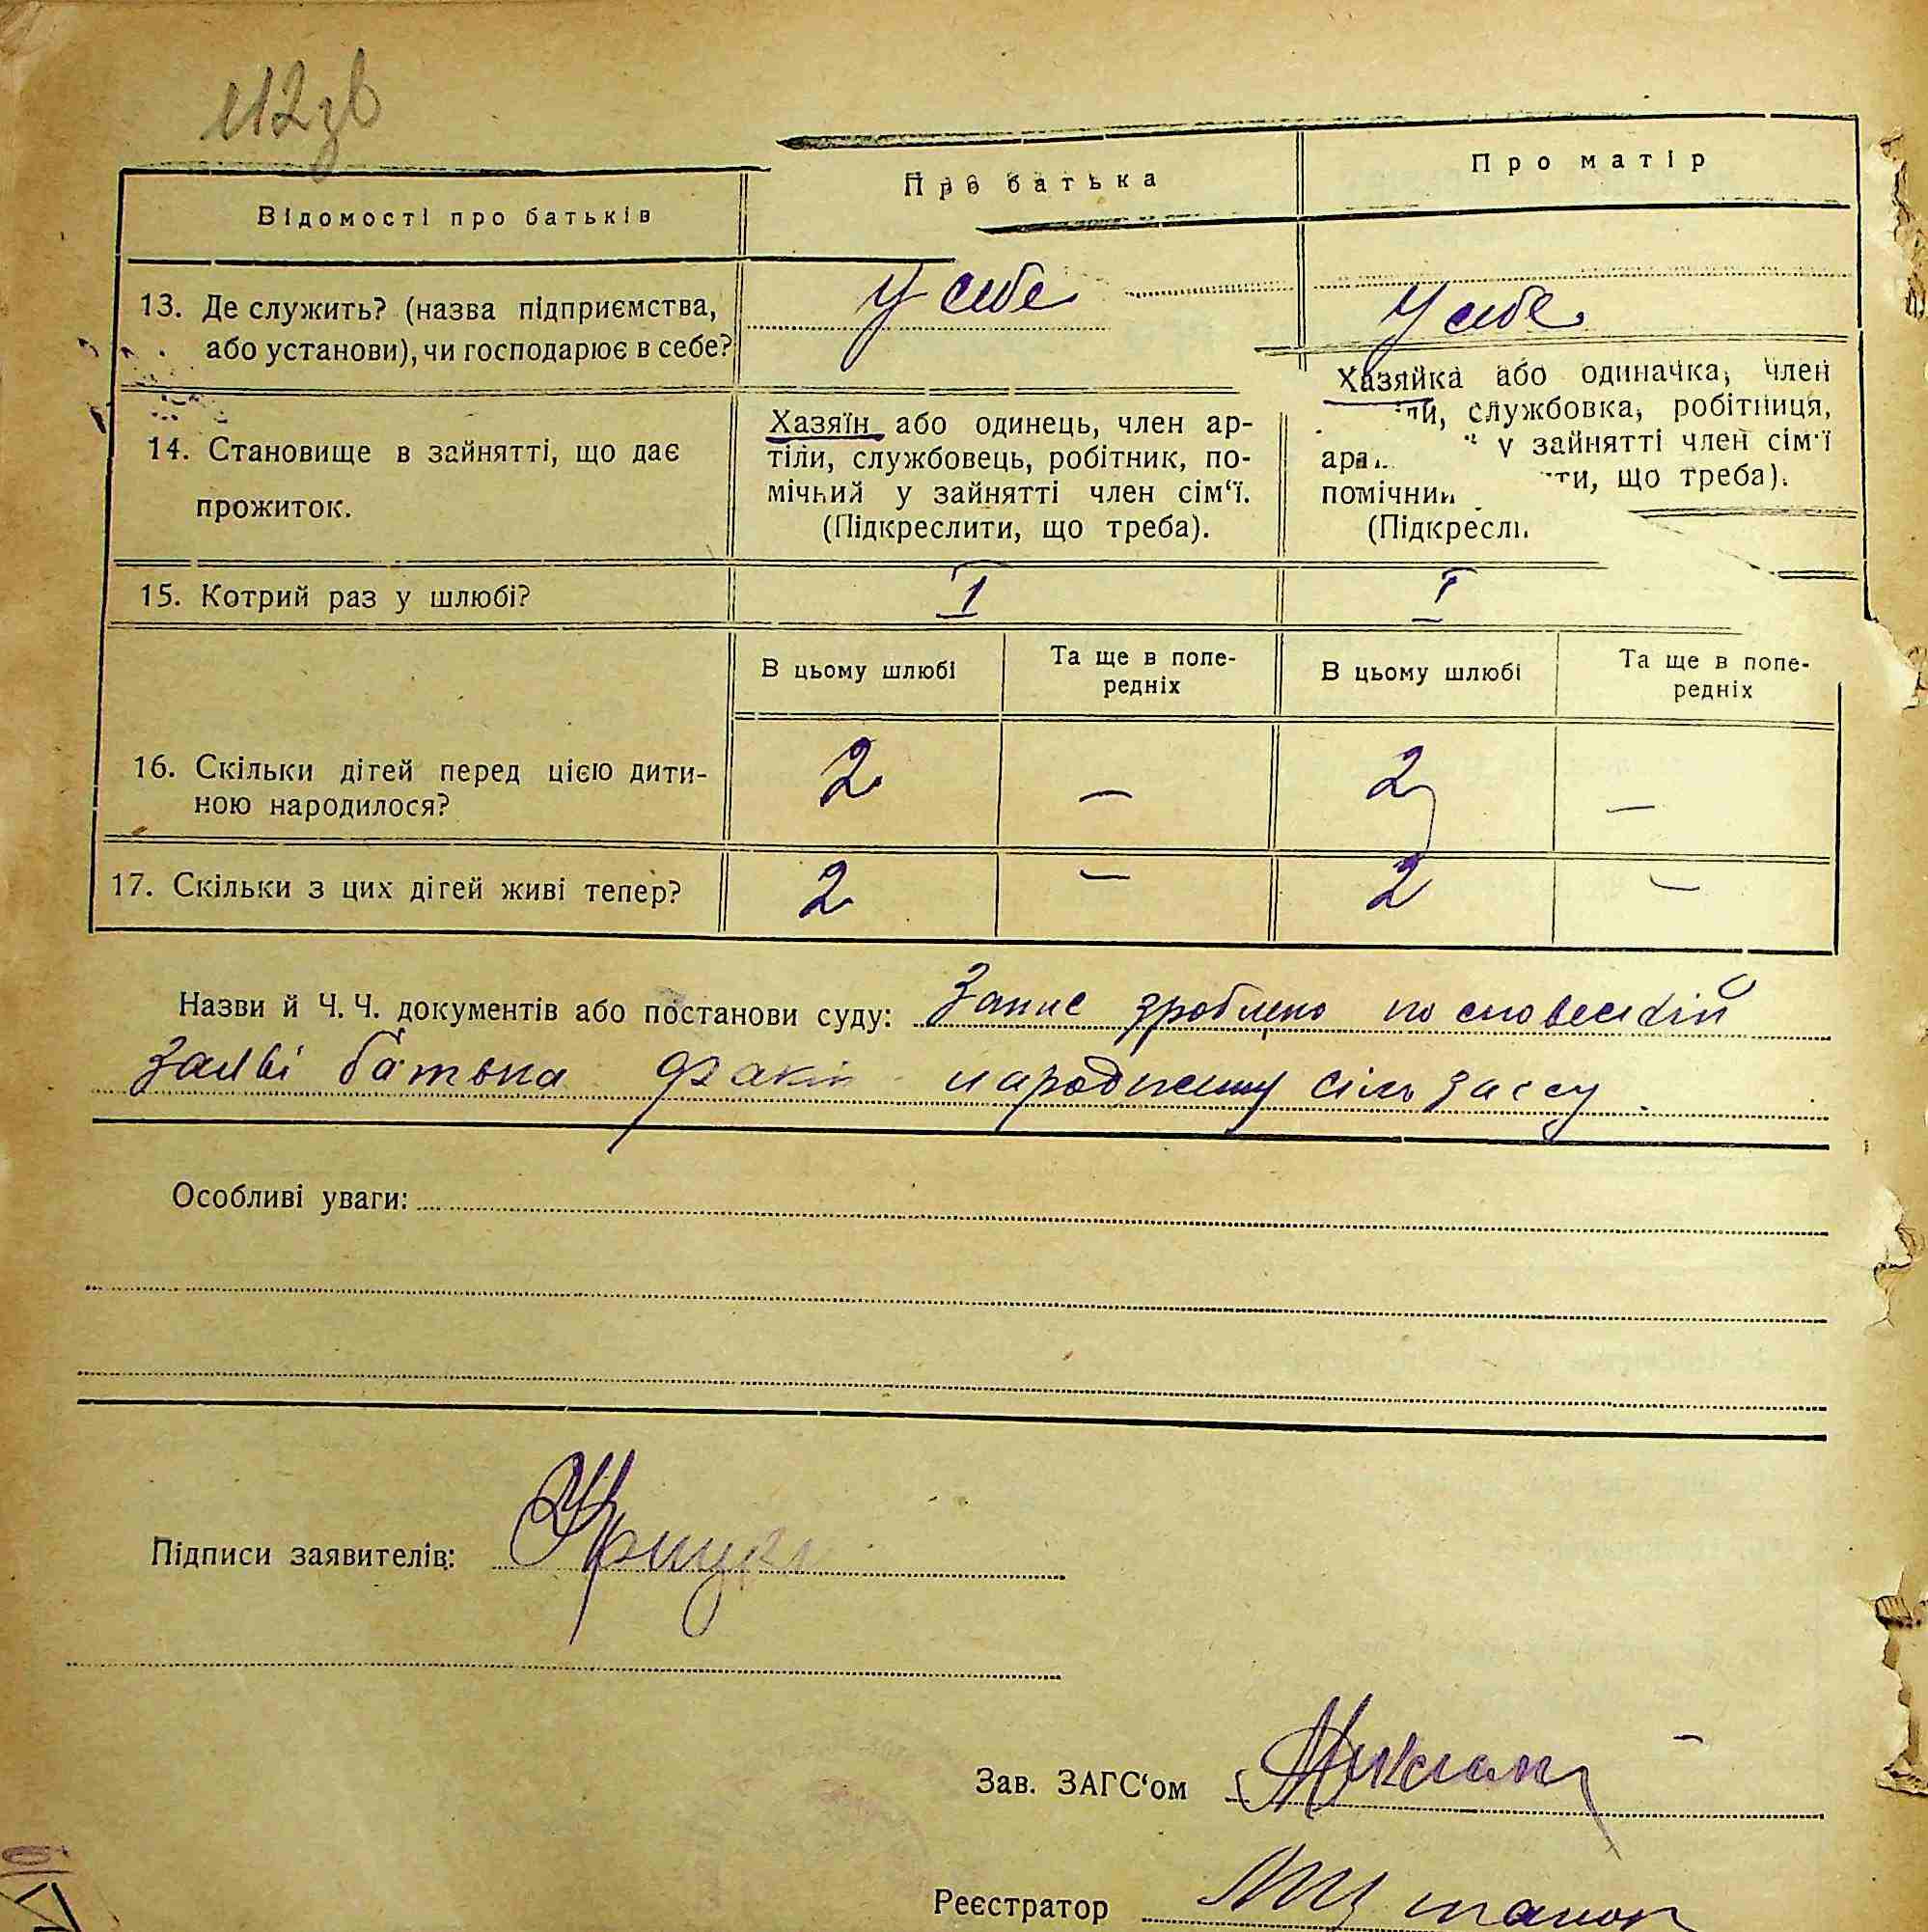 112зв
Відомості про батьків
Про батька
Про матір
13. Де служить? (назва підприємства,
або установи), чи господарює в себе?
У себе
У себе
14. Становище в зайнятті, що дає
прожиток.
Хазяїн або одинець, член ар-
тіли, службовець, робітник, по-
мічний у зайнятті член сім‘ї.
(Підкреслити, що треба).
Хазяйка або одиначка, член
службовка, робітниця,
у зайнятті член сім‘ї
що треба).
15. Котрий раз у шлюбі?
I
I
В цьому шлюбі
Та ще в попе-
редніх
В цьому шлюбі
Та ще в попе-
редніх
16. Скільки дітей перед цією дити-
ною народилося?
2
—
2
—
17. Скільки з цих дітей живі тепер?
2
—
2
—
Назви й Ч. Ч. документів або постанови суду: Запис зроблено по словесній
заяві батька
Особливі уваги:
Підписи заявителів:
Зав. ЗАГС‘ом
Реєстратор